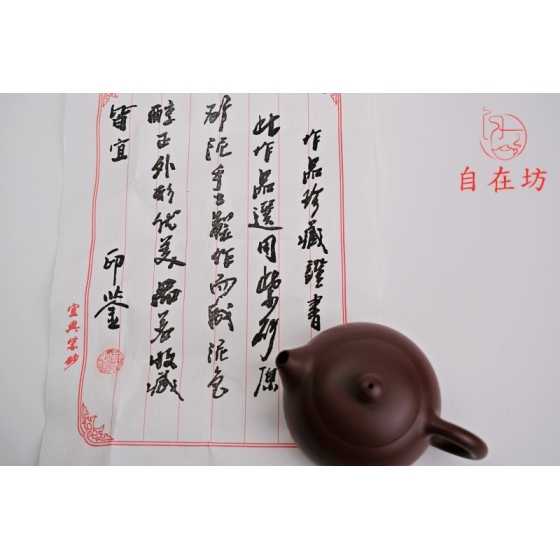 自在坊
作品珍藏證書
此作品選用紫砂原
矿泥手工製作而成泥色
醇正外形优美品茗收藏
皆宜
印鉴
宜興紫砂